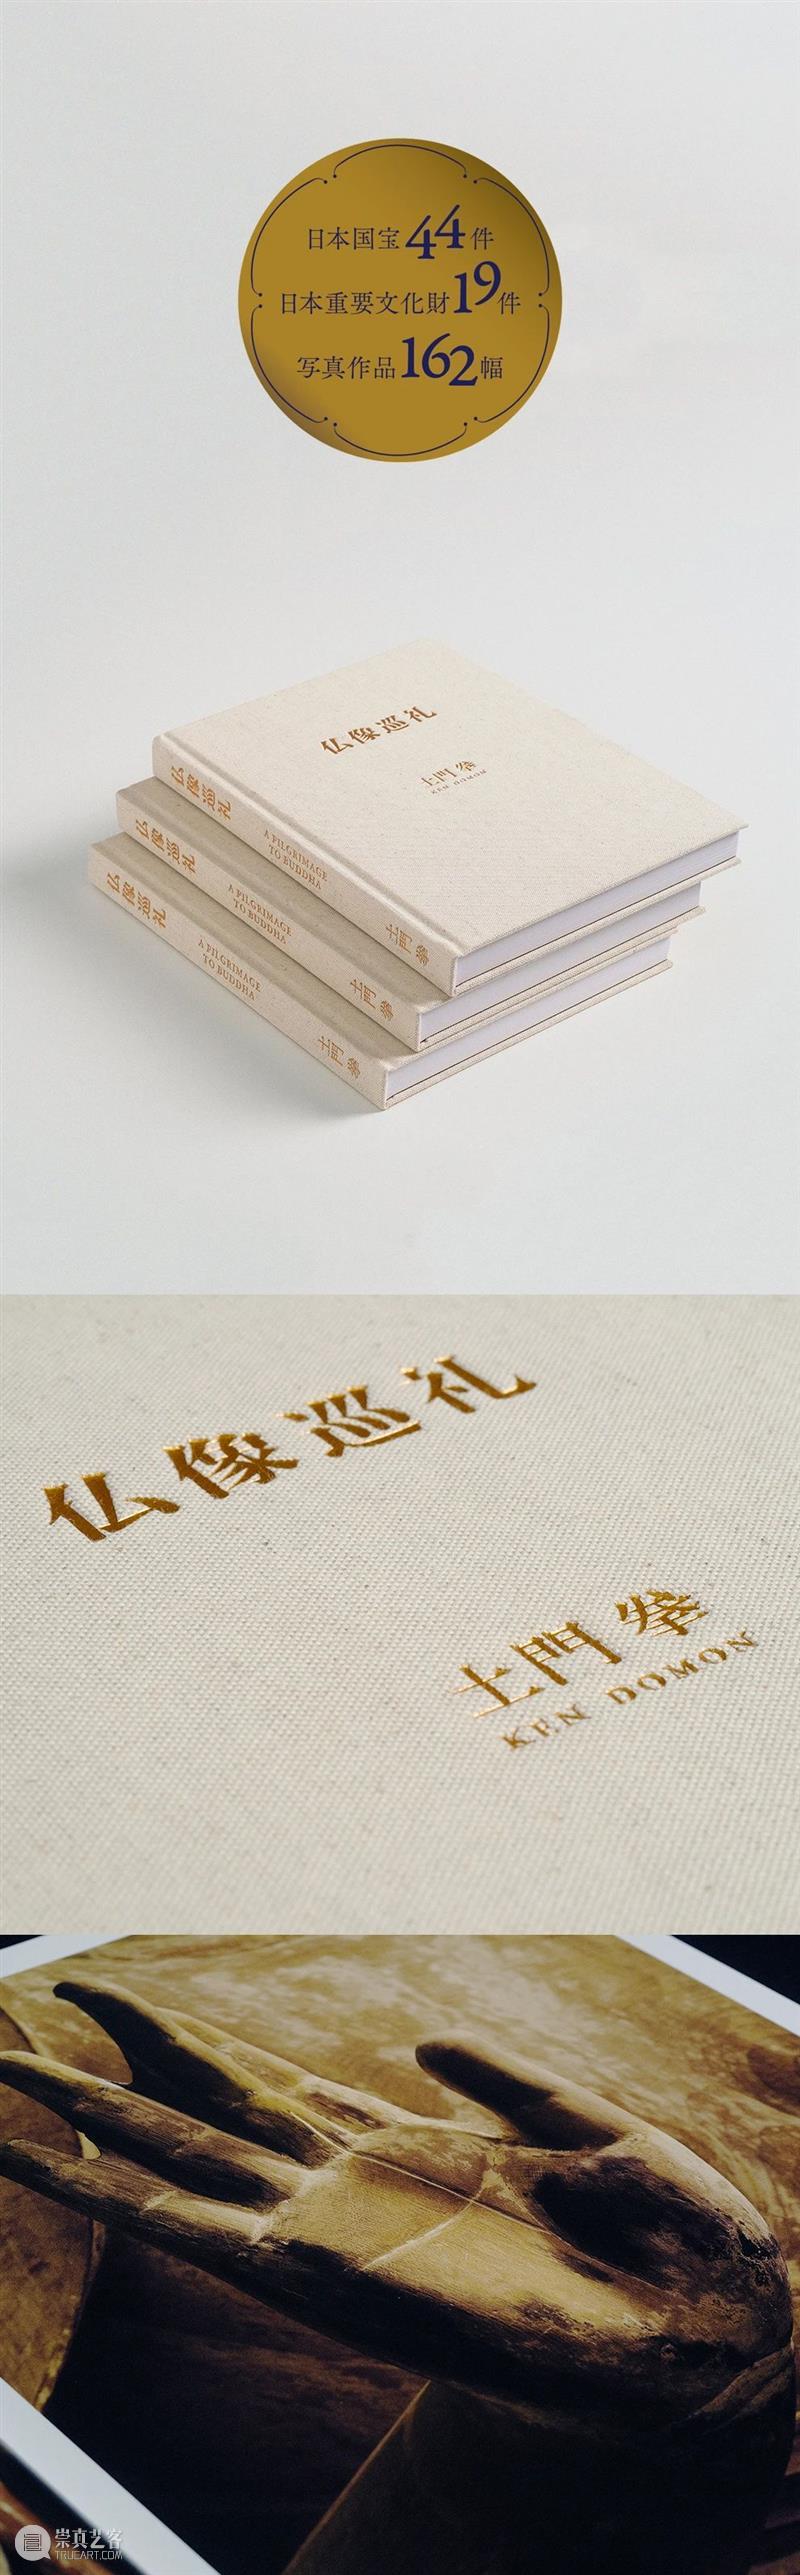 日本国宝44件
日本重要文化財19件
写真作品162幅
仏像巡礼
土門拳
KEN DOMON
仏像巡礼
A PILGRIMAGE
TO BUDDHA
土門拳
仏像巡礼
A PILGRIMAGE
TO BUDDHA
土門拳
仏像巡礼
A PILGRIMAGE
TO BUDDHA
土門拳
仏像巡礼
土門拳
KEN DOMON
崇真艺客
TRUEART.COM